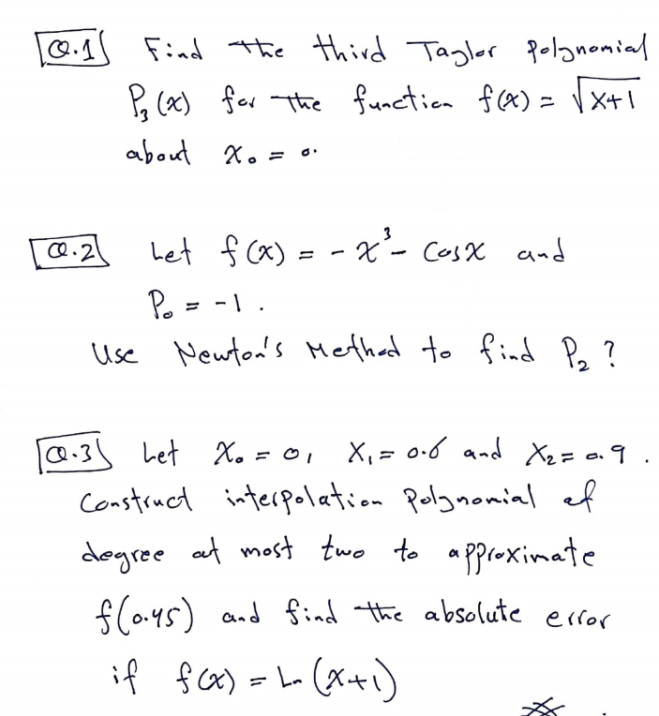 Q.1 Find the third Taylor polynomial
P₃(x) for the function f(x) = √(x+1)
about x₀ = 0.
Q.2 Let f(x) = - x³ - Cosx and
P₀ = -1 .
Use Newton's Method to find P₂ ?
Q.3 Let x₀ = 0, x₁ = 0.6 and x₂ = 0.9 .
Construct interpolation polynomial of
degree at most two to approximate
f(0.45) and find the absolute error
if f(x) = Ln (x+1)